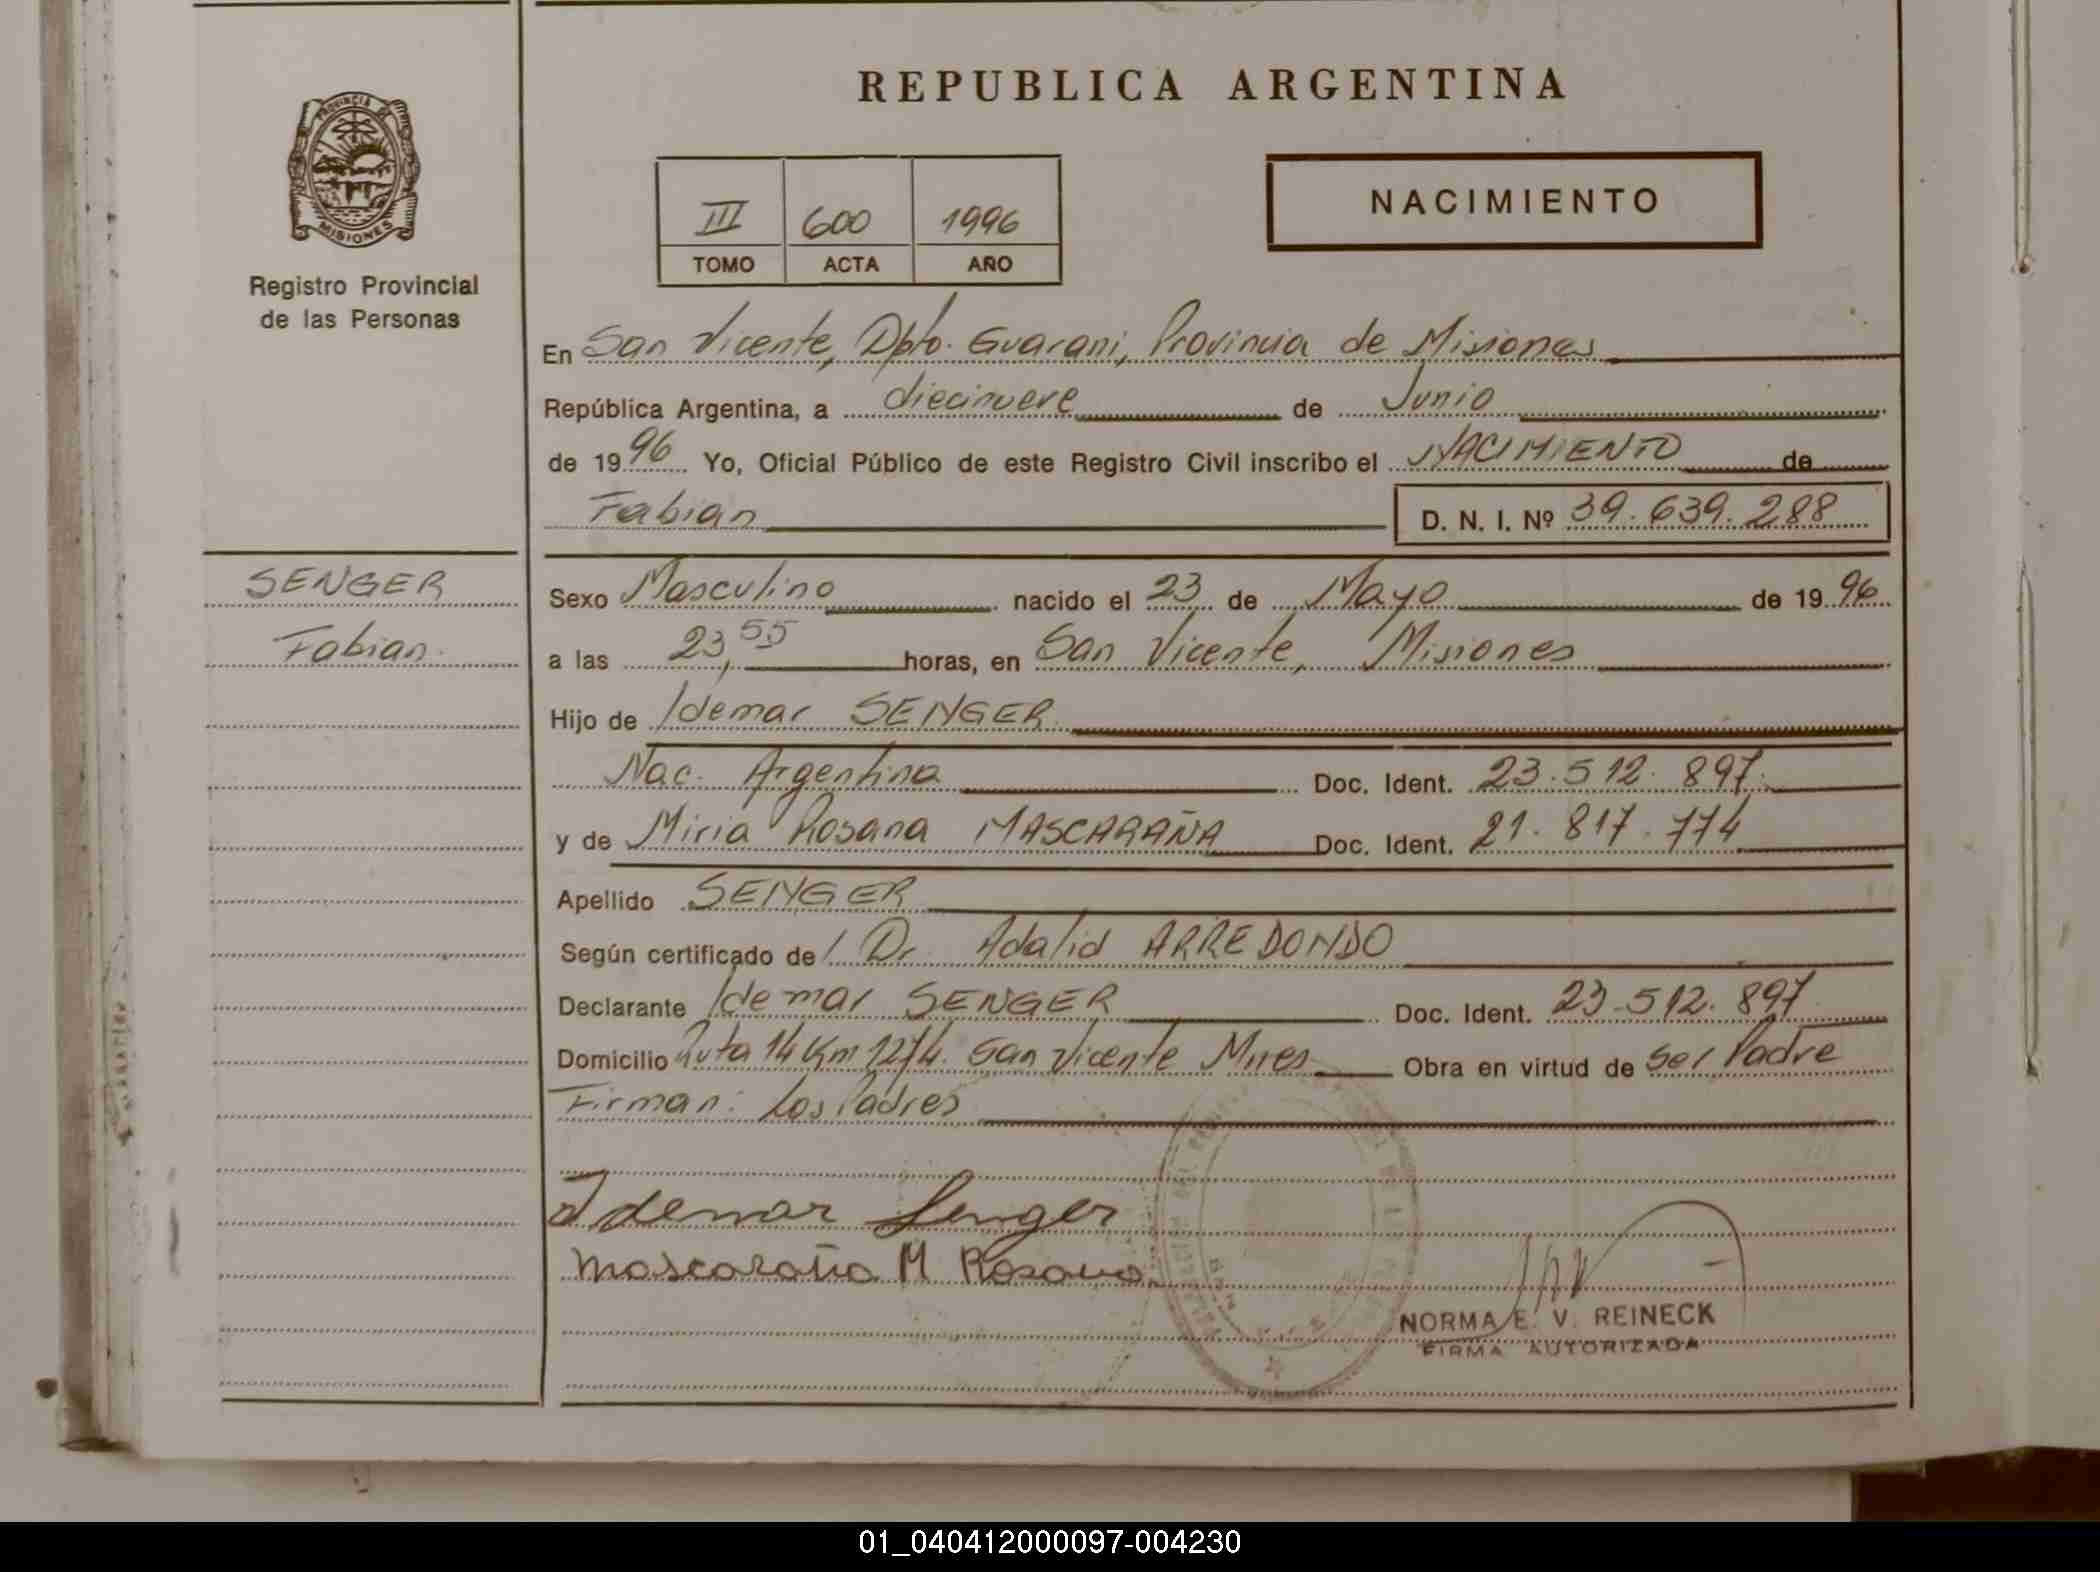 REPUBLICA ARGENTINA
PROVINCIA DE
MISIONES
Registro Provincial
de las Personas
III 600 1996
TOMO ACTA AÑO
NACIMIENTO
En San Vicente, Dpto. Guarani, Provincia de Misiones
República Argentina, a diecinueve de Junio
de 1996 Yo, Oficial Público de este Registro Civil inscribo el NACIMIENTO de
Fabian D. N. I. Nº 39.639.288
SENGER
Fabian
Sexo Masculino nacido el 23 de Mayo de 1996
a las 23,55 horas, en San Vicente, Misiones
Hijo de Idemar SENGER
Nac. Argentina Doc. Ident. 23.512.897
y de Miria Rosana MASCARAÑA Doc. Ident. 21.817.774
Apellido SENGER
Según certificado de Dr. Adalid ARREDONDO
Declarante Idemar SENGER Doc. Ident. 23.512.897
Domicilio Ruta 14 Km 1274. San Vicente Mnes Obra en virtud de ser Padre
Firman: Los Padres
Idemar Senger
Mascaraña M Rosana
NORMA E. V. REINECK
FIRMA AUTORIZADA
01_040412000097-004230